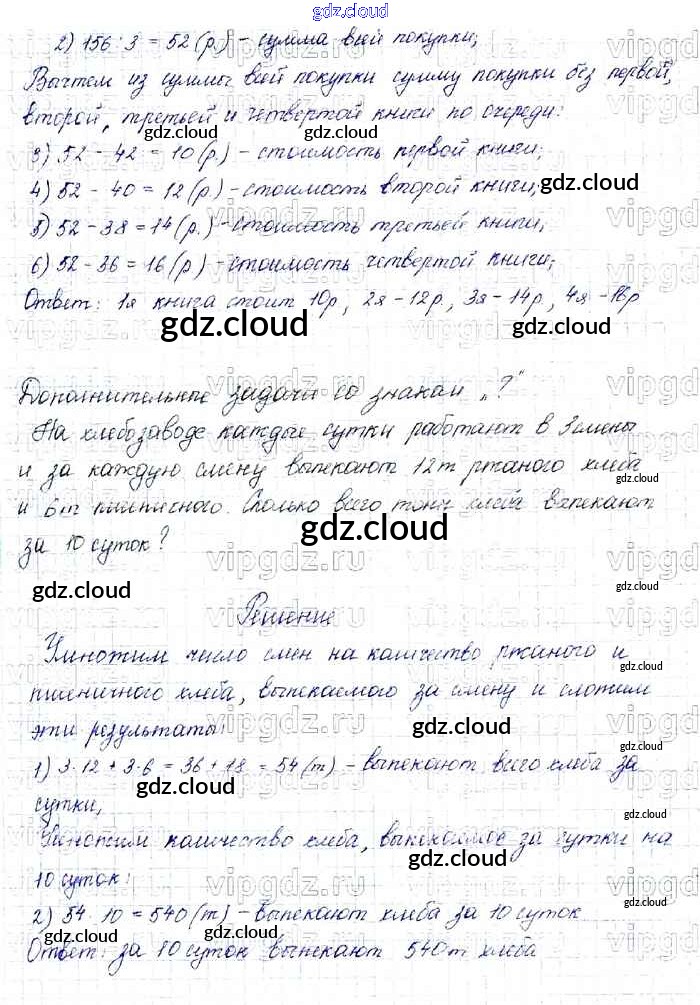 gdz.cloud
2) 156 : 3 = 52 (р.) - сумма всей покупки;
Вычтем из суммы всей покупки сумму покупки без первой,
второй, третьей и четвертой книги по очереди:
3) 52 - 42 = 10 (р.) - стоимость первой книги;
4) 52 - 40 = 12 (р) - стоимость второй книги;
5) 52 - 38 = 14 (р.) - стоимость третьей книги;
6) 52 - 36 = 16 (р) - стоимость четвертой книги;
Ответ: 1я книга стоит 10р, 2я - 12р, 3я - 14р, 4я - 16р
gdz.cloud
Дополнительные задачи со знаком „?"
На хлебозаводе каждые сутки работают в 3 смены
и за каждую смену выпекают 12т ржаного хлеба
и 6т пшеничного. Сколько всего тонн хлеба выпекают
за 10 суток?
gdz.cloud
Решение
Умножим число смен на количество ржаного и
пшеничного хлеба, выпекаемого за смену и сложим
эти результаты:
1) 3·12 + 3·6 = 36 + 18 = 54 (т) - выпекают всего хлеба за
сутки,
Умножим количество хлеба, выпекаемое за сутки на
10 суток:
2) 54 · 10 = 540 (т) - выпекают хлеба за 10 суток
Ответ: за 10 суток выпекают 540т хлеба